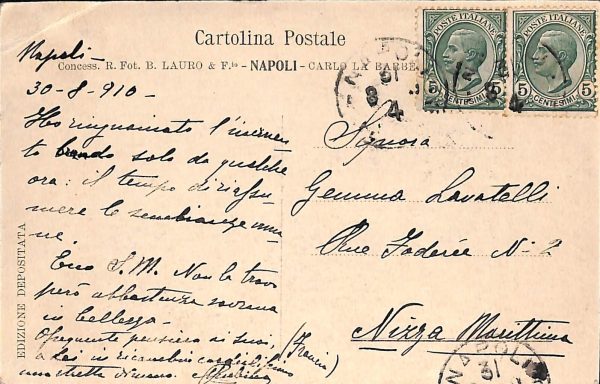 Cartolina Postale
Concess. R. Fot. B. LAURO & F.lo - NAPOLI - CARLO LA BARBE
EDIZIONE DEPOSITATA
POSTE ITALIANE
5 CENTESIMI 5
POSTE ITALIANE
5 CENTESIMI 5
NAPOLI
31
8
4
Napoli -
30-8-910 -
Ho ringuainato l'
to solo da qualche
ora: il tempo di riassu-
mere le sembianze uma-
ne.
Ecco S. M. Non la trovo
però abbastanza sovrana
in bellezza -
pensiero ai suoi,
a Lei in ricambio cordialissimo
una stretta di mano.
Signora
Gemma Lavatelli
Rue Foderée N° 2
Nizza Marittima
(Francia)
NAPOLI
31